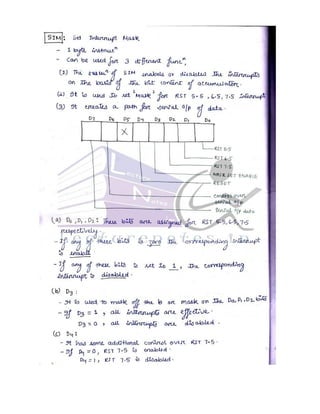 SIM : Set Interrupt Mask
- 1 byte instruⁿ
- Can be used for 3 different funcⁿ,
(1) The execuⁿ of SIM enables or disables the interrupts
on the basis of the bit content of accumulator.
(2) It is used to set 'Mask' for RST 5.5, 6.5, 7.5 Interrupt
(3) It creates a path for serial o/p of data.
D7 D6 D5 D4 D3 D2 D1 D0
X
RST 5.5
RST 6.5
RST 7.5
MASK SET ENABLE
RESET
control over
serial o/p
Serial o/p data
(a) D0, D1, D2 : These bits are assigned for RST 5.5, 6.5, 7.5
respectively.
- If any of these bits is zero the corresponding interrupt
is enable
- If any of these bits is set to 1, the corresponding
interrupt is disabled.
(b) D3 :
- It is used to mask off the or mask on the D0, D1, D2 bits
- If D3 = 1, all interrupts are effective.
D3 = 0, all interrupts are disabled.
(c) D4 :
- It has some additional control over RST 7.5.
- If D4 = 0, RST 7.5 is enabled.
D4 = 1, RST 7.5 is disabled.